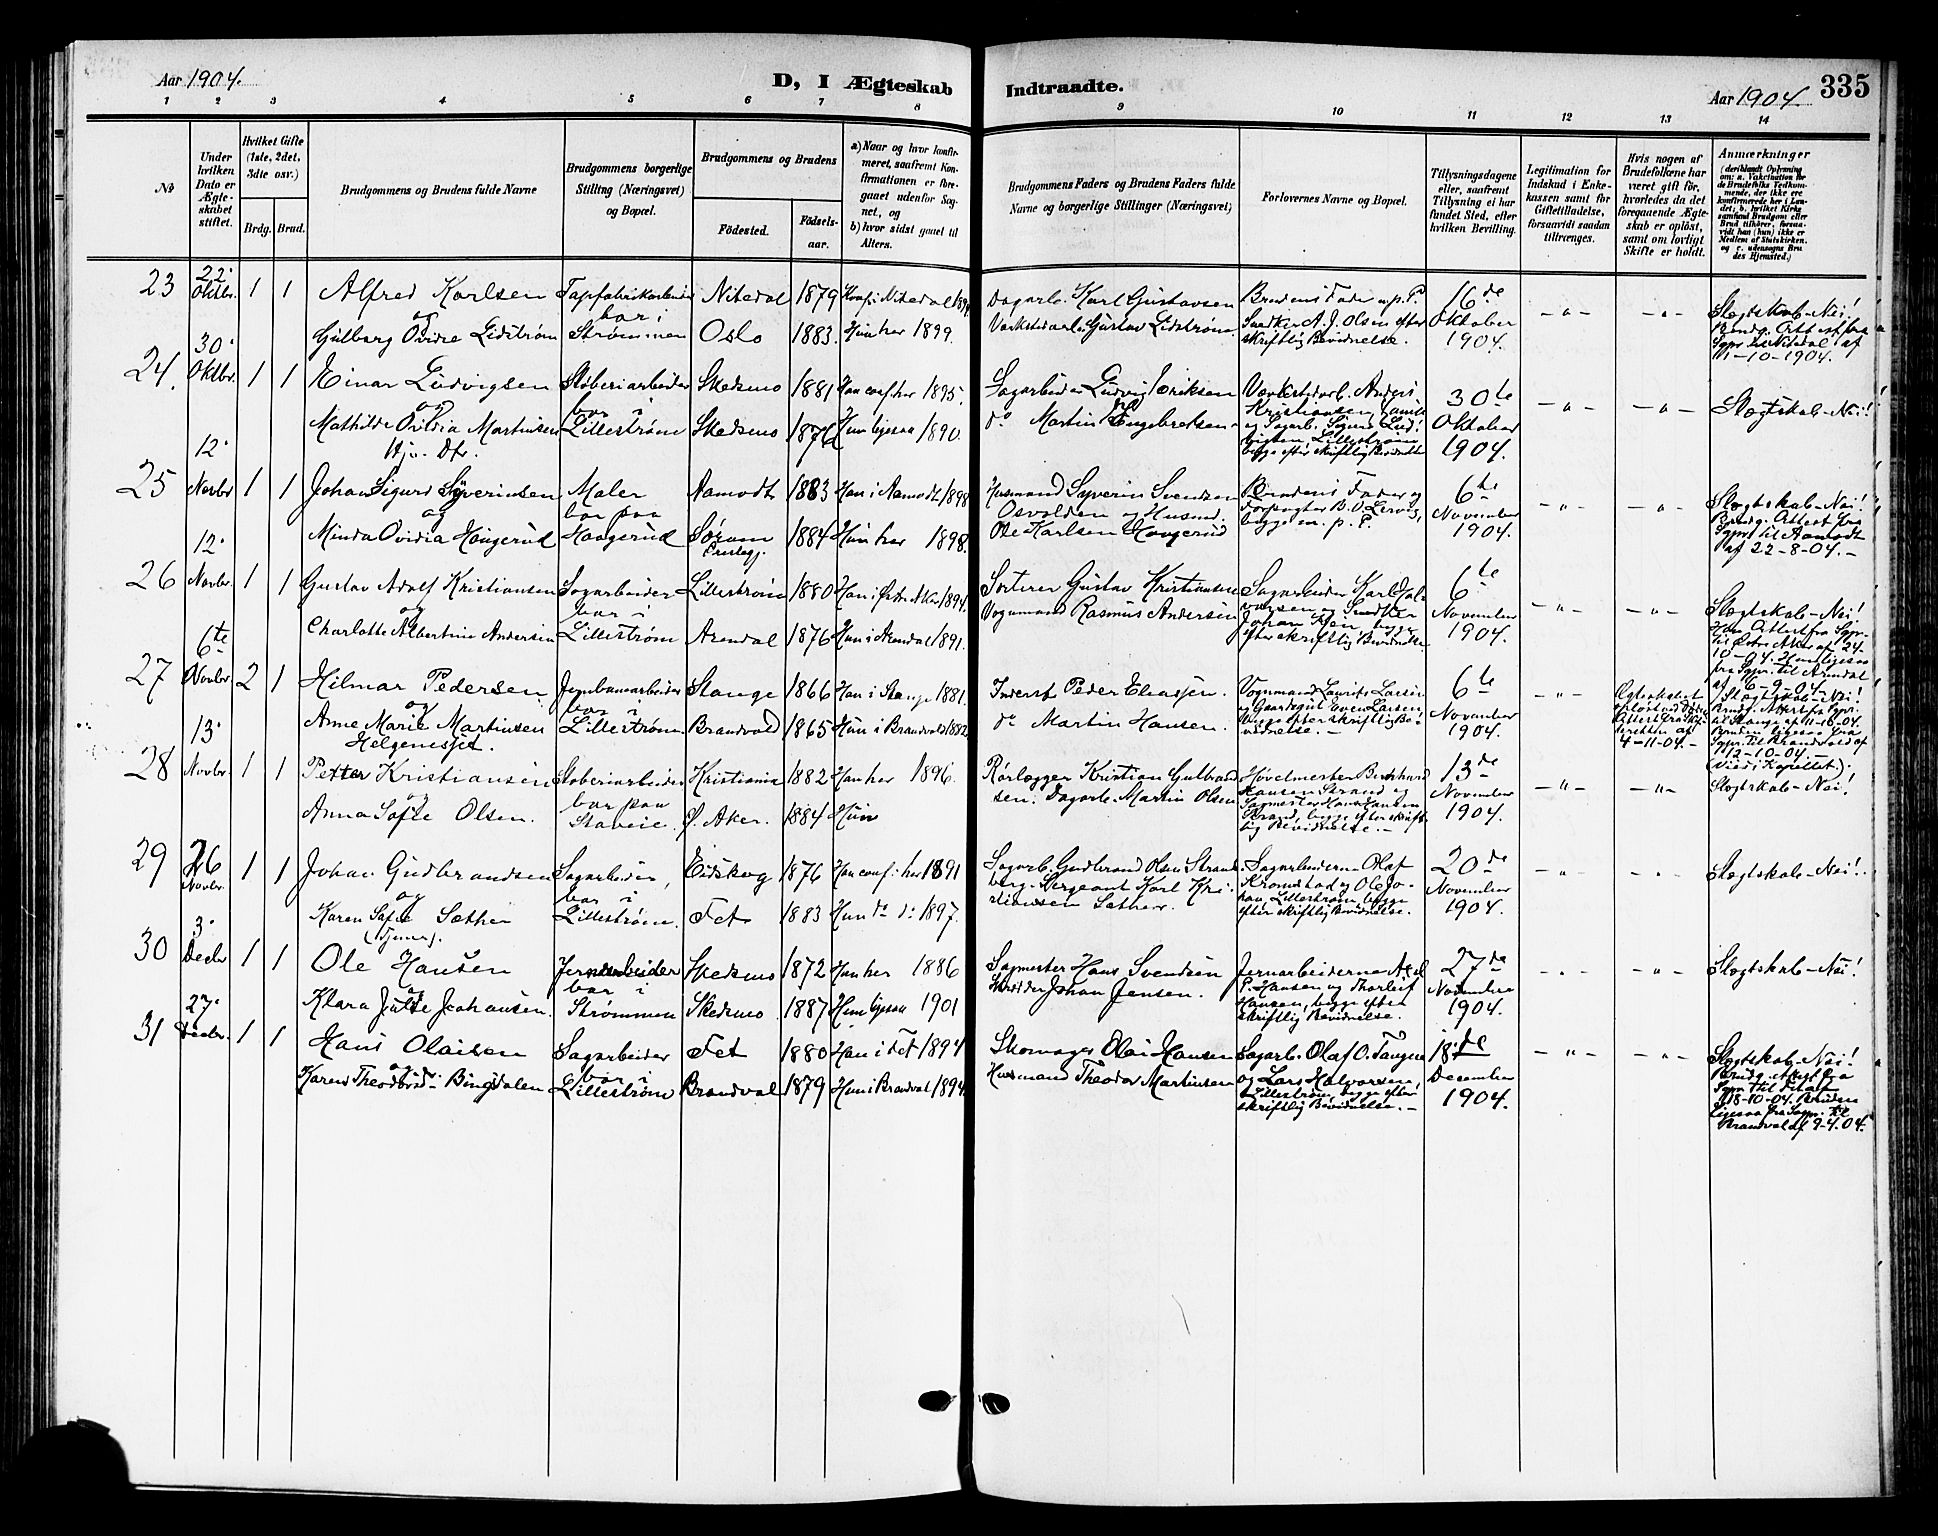 Aar 1904.
D, I Ægteskab
Indtraadte.
Aar 1904.
335
1 2 3 4 5 6 7 8 9 10 11 12 13 14
No
Under hvilken Dato er Ægteskabet stiftet.
Hvilket Gifte (1ste, 2det, 3die osv.)
Brdg. Brud.
Brudgommens og Brudens fulde Navne
Brudgommens borgerlige Stilling (Næringsvei) og Bopæl.
Brudgommens og Brudens
Födested.
Födsels-aar.
a) Naar og hvor konfirmeret, saafremt Konfirmationen er foregaaet udenfor Sognet, og
b) hvor sidst gaaet til Alters.
Brudgommens Faders og Brudens Faders fulde Navne og borgerlige Stillinger (Næringsvei)
Forlovernes Navne og Bopæl.
Tillysningsdagene eller, saafremt Tillysning ei har fundet Sted, efter hvilken Bevilling.
Legitimation for Indskud i Enkekassen samt for Giftetilladelse, forsaavidt saadan tiltrænges.
Hvis nogen af Brudefolkene har været gift för, hvorledes da det foregaaende Ægteskab er oplöst, samt om lovligt Skifte er holdt.
Anmærkninger
23 22. Oktbr. 1 1 Alfred Karlsen Tapfabrikarbeider Nitedal 1879 Konf. i Nitedal Dagarb. Karl Gustavsen Brudens Fader m. p. P. 16de – " – – " – Slægtskab – Nei!
og bor i Snedker A. J. Olsen efter Oktober Brudg. Attest fra
Gulborg Ovidie Lidstrøm Strømmen Oslo 1883. Hun her 1899. Verkstedarb. Gustav Lidstrøm. skriftlig Bevidnelse. 1904. Sgpr. til Nitedal af
1-10-1904.
24. 30. Oktbr. 1 1 Einar Ludvigsen Støberiarbeider Skedsmo 1881 Han conf. her 1895. Sagarbeider Ludvig Eriksen Værkstedarb. Anders 30te – " – – " – Slægtskab – Nei!
og bor i Kristiansen Oktober
Mathilde Ovidia Martinsen Lillestrøm Skedsmo 1876 Hun ligesaa 1890. do Martin Engebretsen 1904.
begge efter skriftlig Bevidnelse
25 12. Novbr. 1 1 Johan Sigurd Syverinsen Maler Aamodt 1883 Han i Aamodt 1898 Husmand Syverin Svendsen Brudens Fader og 6te – " – – " – Slægtskab – Nei!
og bor paa Osvolden og Husmd. Forpagter November Brudg. Attest fra
Minda Ovidia Haugerud Haugerud Sørum 1884 Hun her 1898. Ole Karlsen Haugerud begge m. p. P. 1904. Sgpr. til Aamodt
Prestegj. af 22-8-04. –
26 12. Novbr. 1 1 Gustav Adolf Kristiansen Sagarbeider Lillestrøm 1880 Han i Østre Aker 1894. Sorterer Gustav Kristiansen Sagarbeider Karl Hal- 6te – " – – " – Slægtskab – Nei!
og bor i Vognmand Rasmus Andersen vorsen og Snedker November Hans Attest fra Sgpr.
Charlotte Albertine Andersen Lillestrøm Arendal 1876 Hun i Arendal 1891. efter skriftlig Bevidnelse 1904. til Østre Aker af 24-
10-04. Hun ligesaa
fra Sgpr. til Arendal
27 6te Novbr. 2 1 Hilmar Pedersen Jernbanearbeider Stange 1866 Han i Stange 1881. Inderst Peder Eliassen. Vognmand Laurits Larsen 6te – " – Ægteskabet Slægtskab – Nei!
og bor i og Gaardsgut Even Larsen November
Anne Marie Martinsen Lillestrøm Brandvold 1865 Hun i Brandvold 1882. do Martin Hansen. begge efter skriftlig Be- 1904. Brudg. Attest fra Sgpr.
Helgenesset. vidnelse. – 4-11-04. – til Stange af 11-10-04.
Bruden ligesaa fra
Sgpr. til Brandvold af
12-10-04.
(Viede i Kapellet.)
28 13. Novbr. 1 1 Petter Kristiansen Støberiarbeider Kristiania 1882 Han her 1896. Rørlægger Kristian Gulbrand- Høvelmester Bernhard 13de – " – – " – Slægtskab – Nei!
og bor paa sen. Dagarb. Martin Olsen Hansen Strand og November
Anna Sofie Olsen. Staveie. Ø. Aker. 1884 Hun Sagmester Hans Hansen 1904.
Strand, begge efter skrift-
lig Bevidnelse. –
29 26 Novbr. 1 1 Johan Gudbrandsen Sagarbeider, Eidskog 1876 Han conf. her 1891 Sagarb. Gudbrand Olsen Strand- Sagarbeiderne Olaf 20de – " – – " – Slægtskab – Nei!
og bor i berg. Sergeant Karl Kri- Kromstad og Ole Jo- November
Karen Sofie Sæther Lillestrøm. Fet 1883 Hun do do 1897. stiansen Sæther. han, Lillestrøm, begge 1904.
efter skriftlig Bevidnelse.
30 3. Decbr 1 1 Ole Hansen Jernarbeider Skedsmo 1872 Han her 1886 Sagmester Hans Svendsen Jernarbeiderne Axel 27de – " – – " – Slægtskab – Nei!
og bor i P. Hansen og Thorleif November
Klara Julie Johansen. Strømmen Skedsmo. 1887 Hun ligesaa 1901 Johan Jensen. Hansen, begge efter 1904.
skriftlig Bevidnelse.
31 27. Decbr. 1 1 Hans Olaisen Sagarbeider Fet 1880 Han i Fet 1894 Skomager Olai Hansen Sagarb. Olaf O. Tangen 18de – " – – " – Slægtskab – Nei!
og bor i og Lars Halvorsen, December Brudg. Attest fra
Karen Theodorsd. Bingdalen Lillestrøm Brandval 1879 Hun i Brandval 1894. Husmand Theodor Martinsen Lillestrøm, begge efter 1904. Sgpr. til Fet af
skriftlig Bevidnelse. – 18-10-04. Bruden
ligesaa fra Sogpr. til
Brandval af 9-4.04.